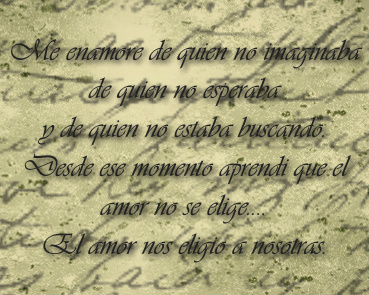 Me enamore de quien no imaginaba
de quien no esperaba
y de quien no estaba buscando.
Desde ese momento aprendi que el
amor no se elige....
El amor nos eligio a nosotras.